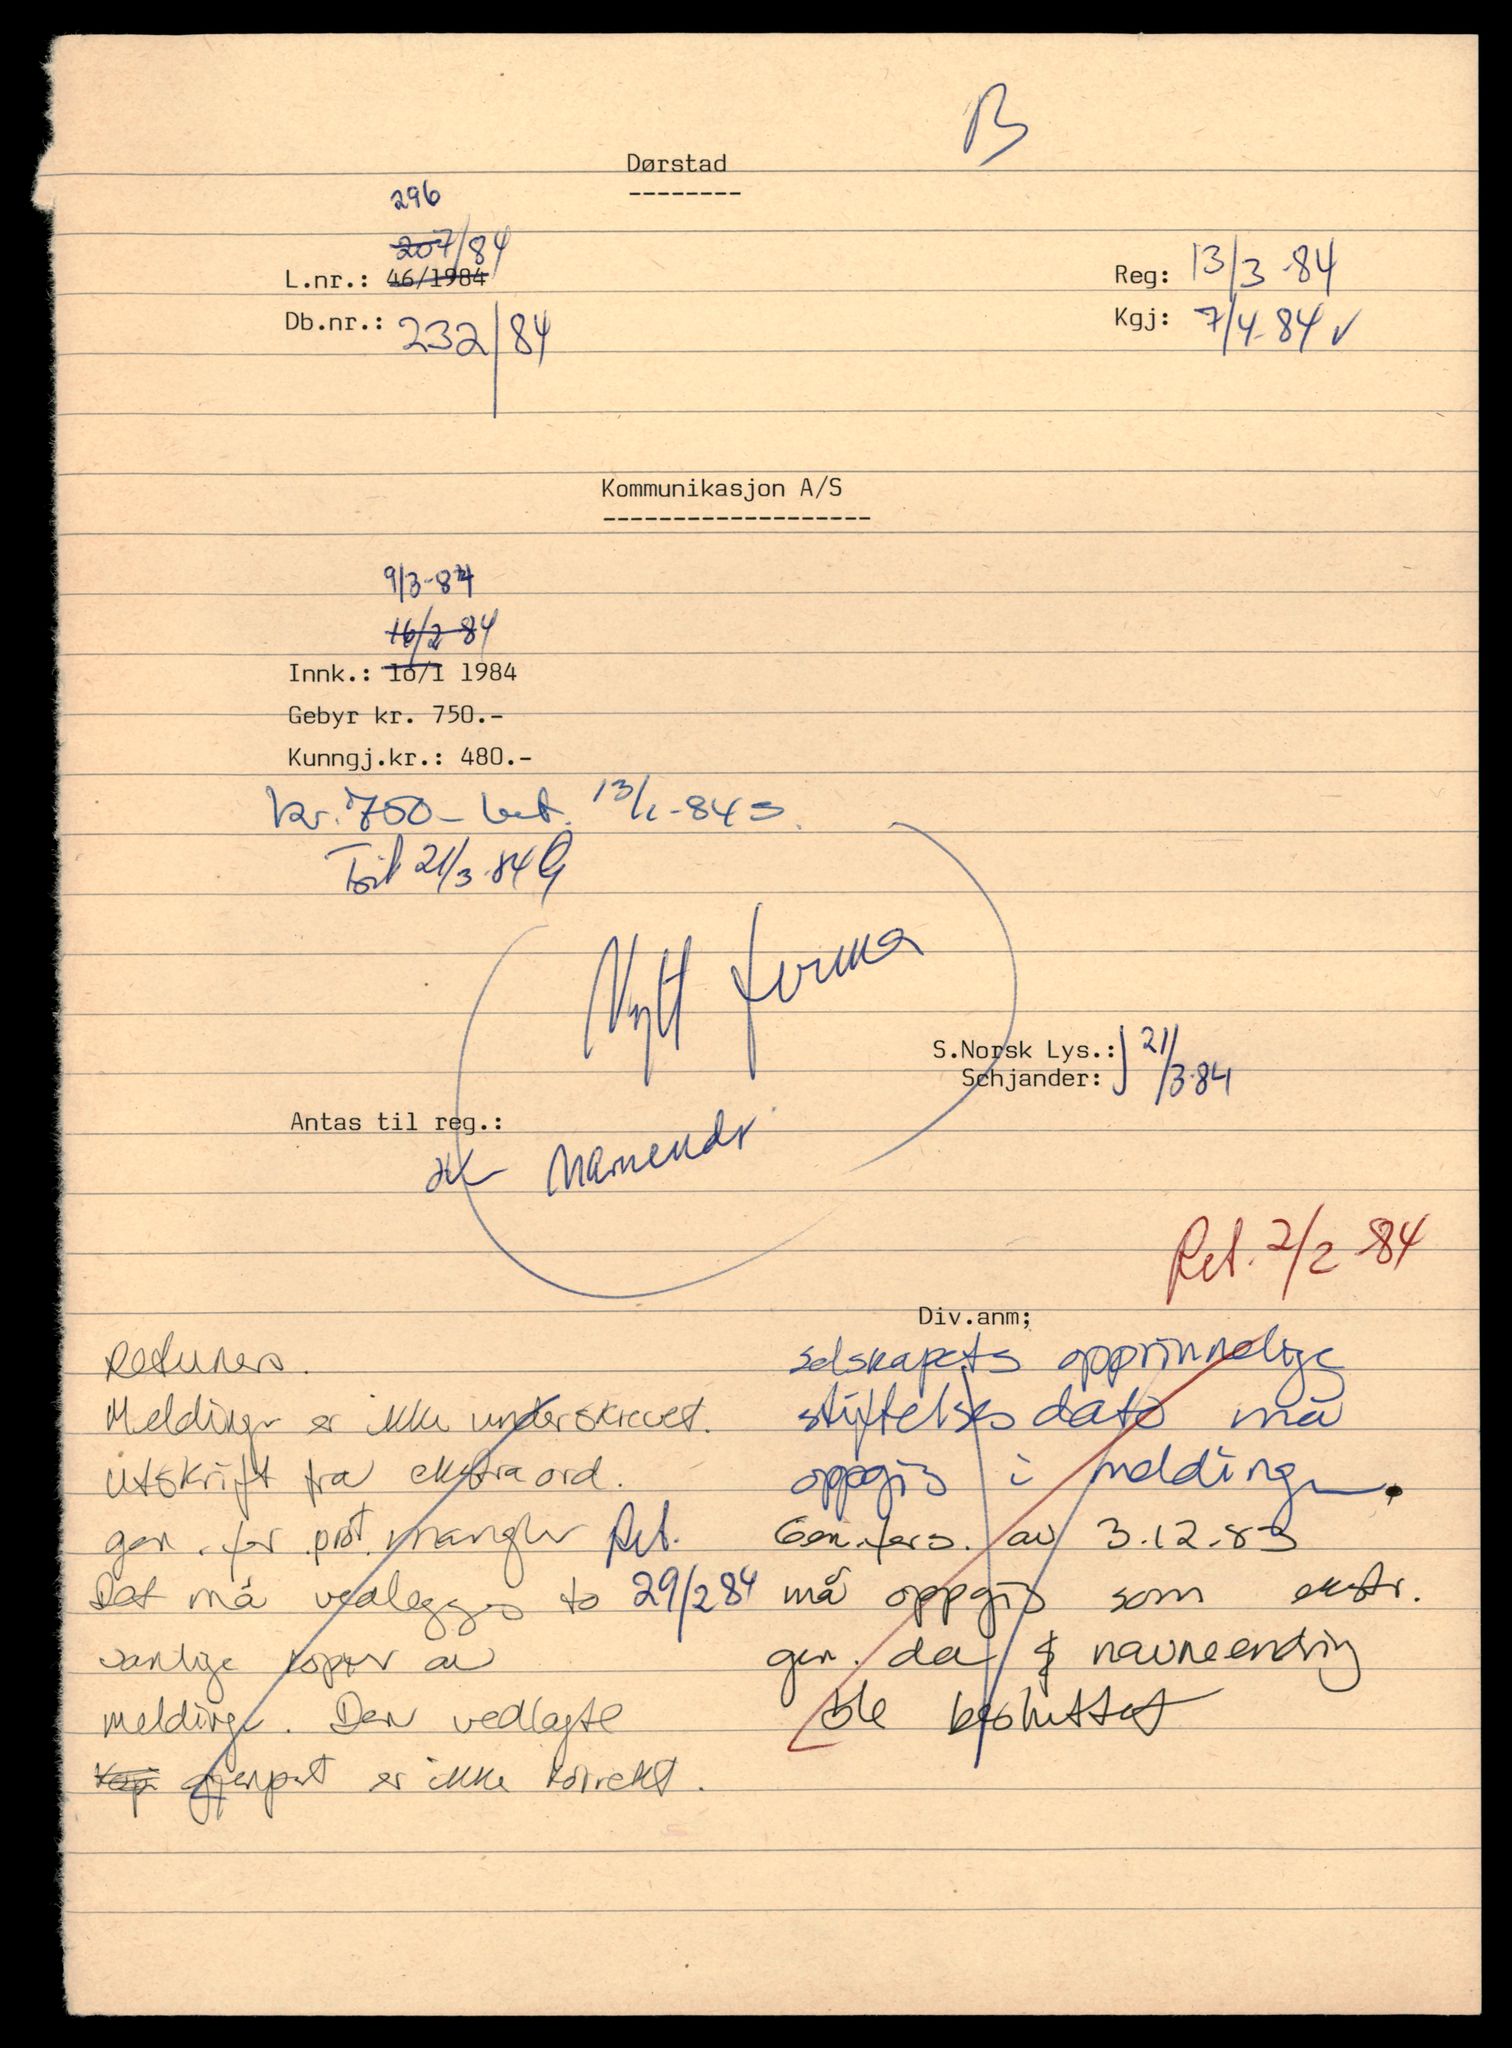 B
Dørstad
--------
296
207/84
L.nr.: 46/1984
Db.nr.: 232/84
Reg: 13/3-84
Kgj: 7/4-84 ✓
Kommunikasjon A/S
-------------------
9/3-84
16/2 84
Innk.: 10/1 1984
Gebyr kr. 750.-
Kunngj.kr.: 480.-
kr. 750- bet. 13/1-84
21/3-84
Nytt firma
S.Norsk Lys.: } 21/3-84
Schjander:
Antas til reg.:
Navneendr
Ret. 2/2-84
Div.anm;
Returneres.
Meldingen er ikke underskrevet.
Utskrift fra ekstraord.
gen. for prot. mangler Ret.
Det må vedlegges to 29/2 84
vanlige kopier av
meldingen. Den vedlagte
Kopi gjenpart er ikke korrekt.
selskapets opprinnelige
stiftelsesdato må
oppgis i meldingen.
Gen.fors. av 3.12.83
må oppgis som ekstr.
gen. da navneendring
ble besluttet